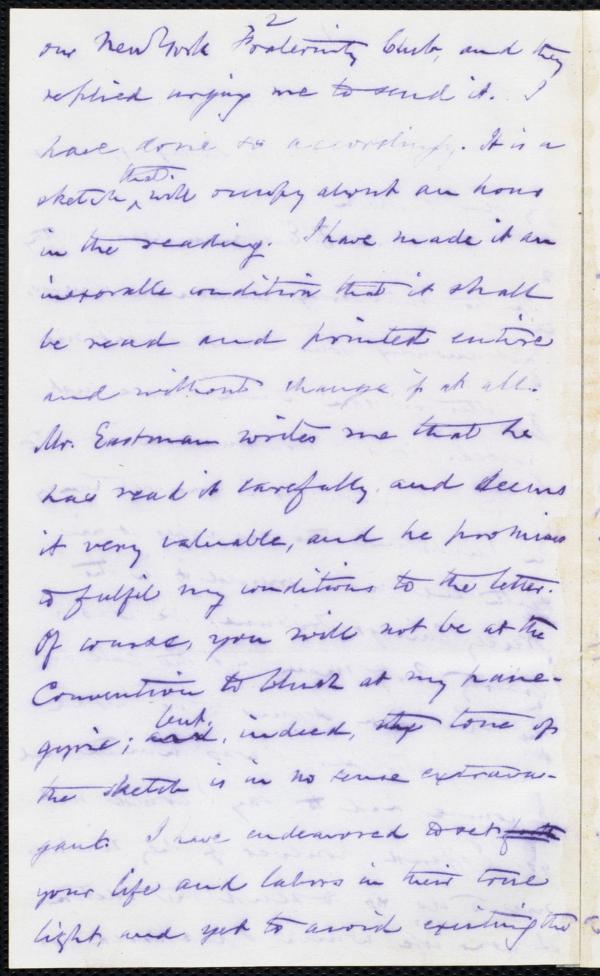 2
our New York Fraternity Club, and they
replied urging me to send it. I
have done so accordingly. It is a
sketch that will occupy about an hour
in the reading. I have made it an
inexorable condition that it shall
be read and printed entire
and without change at all.
Mr. Eastman writes me that he
has read it carefully and deems
it very valuable, and he promises
to fulfil my conditions to the letter.
Of course, you will not be at the
Convention to blush at my pane-
gyric; and but, indeed, the tone of
the sketch is in no sense extrava-
gant. I have endeavored to set forth
your life and labors in their true
light and yet to avoid exciting the